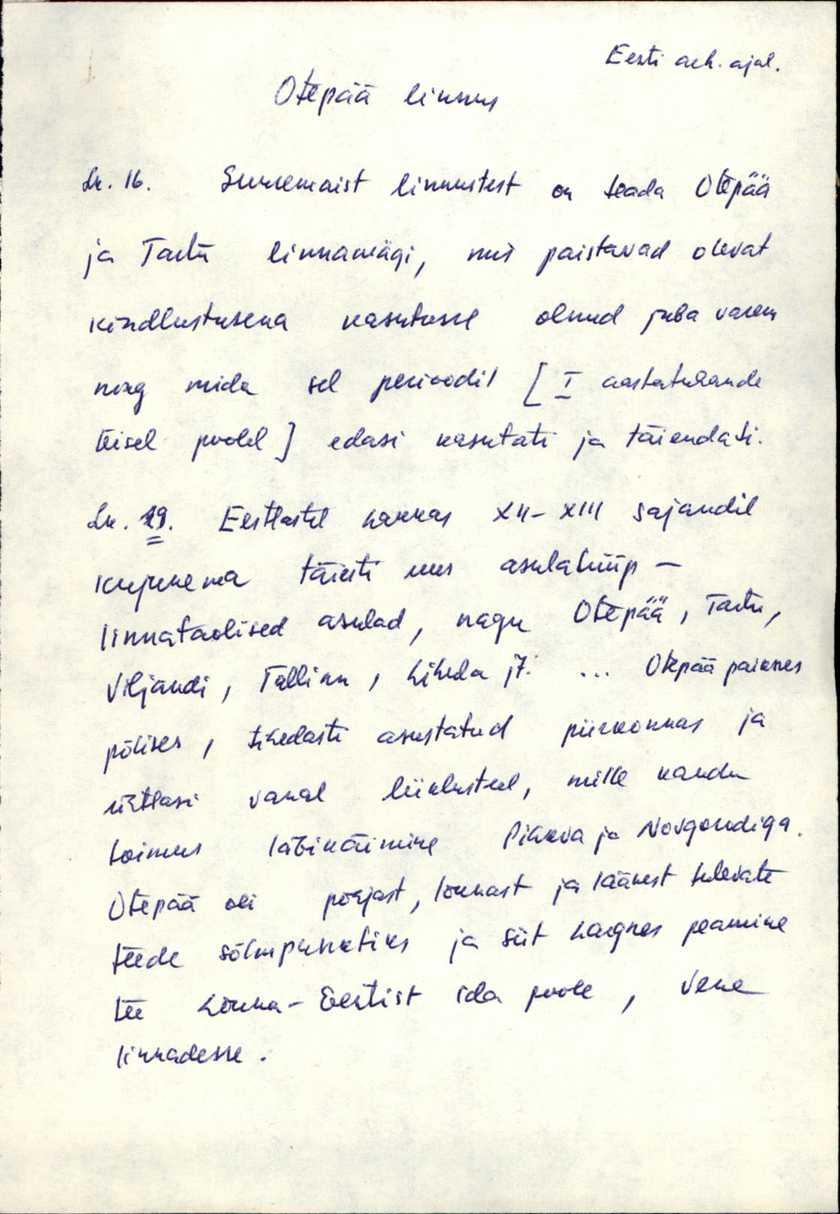 Eesti arh. ajal.
Otepää linnus
Lk. 16. Suuremaist linnustest on teada Otepää
ja Tartu linnamägi, mis paistavad olevat
kindlustusena kasutusel olnud juba varem
ning mida sel perioodil [ I aastatuhande
teisel poolel ] edasi kasutati ja täiendati.
Lk. 19. Eestlastel hakkas XII-XIII sajandil
kujunema täiesti uus asulatüüp —
linnataolised asulad, nagu Otepää, Tartu,
Viljandi, Tallinn, Lihula jt. ... Otepää paiknes
põlises, tihedasti asustatud piirkonnas ja
ühtlasi vanal liiklusteel, mille kaudu
toimus läbikäimine Pihkva ja Novgorodiga.
Otepää oli põhjast, lõunast ja läänest tulevate
teede sõlmpunktiks ja siit hargnes peamine
tee Lõuna-Eestist ida poole, Vene
linnadesse.